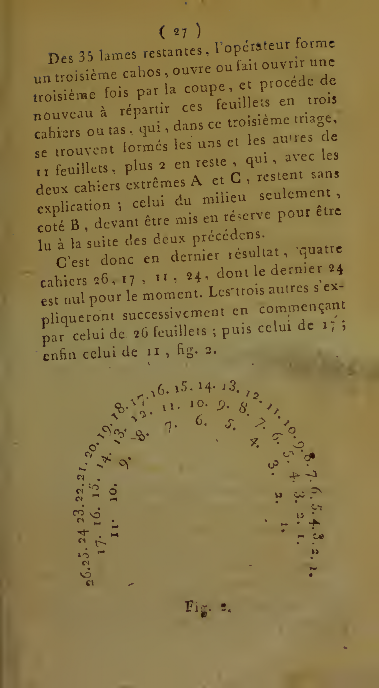 ( 27 )
Des 35 lames restantes, l'opérateur forme
un troisième cahos, ouvre ou fait ouvrir une
troisième fois par la coupe, et procède de
nouveau à répartir ces feuillets en trois
cahiers ou tas, qui, dans ce troisième triage,
se trouvent formés les uns et les autres de
11 feuillets, plus 2 en reste, qui, avec les
deux cahiers extrêmes A et C, restent sans
explication ; celui du milieu seulement,
coté B, devant être mis en réserve pour être
lu à la suite des deux précédens.
C'est donc en dernier résultat, quatre
cahiers 26, 17, 11, 24, dont le dernier 24
est nul pour le moment. Les trois autres s'ex-
pliqueront successivement en commençant
par celui de 26 feuillets ; puis celui de 17 ;
enfin celui de 11, fig. 2.
26. 25. 24. 23. 22. 21. 20. 19. 18. 17. 16. 15. 14. 13. 12. 11. 10. 9. 8. 7. 6. 5. 4. 3. 2. 1.
17. 16. 15. 14. 13. 12. 11. 10. 9. 8. 7. 6. 5. 4. 3. 2. 1.
11. 10. 9. 8. 7. 6. 5. 4. 3. 2. 1.
Fig. 2.